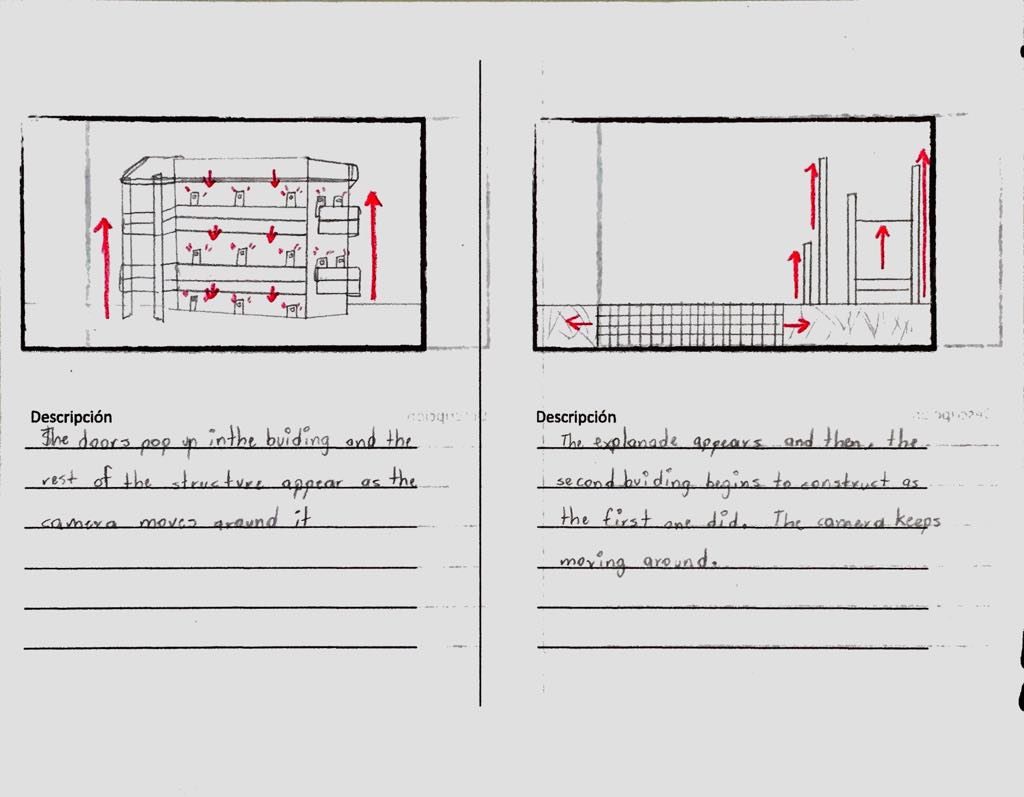 Descripción
The doors pop up in the buiding and the
rest of the structure appear as the
camera moves around it
Descripción
The explanade appears and then, the
second buiding begins to construct as
the first one did. The camera keeps
moving around.